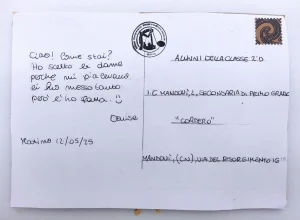 Ciao! Come stai?
Ho scelto le dame
perché mi piacevano,
ci ho messo tanto
però l'ho fatta. :)
Denise
12/05/25
ALUNNI DELLA CLASSE 2°D
I.C. MONDOVÌ 2, SECONDARIA DI PRIMO GRADO
"CORDERO"
MONDOVÌ, (CN), VIA DEL RISORGIMENTO 16